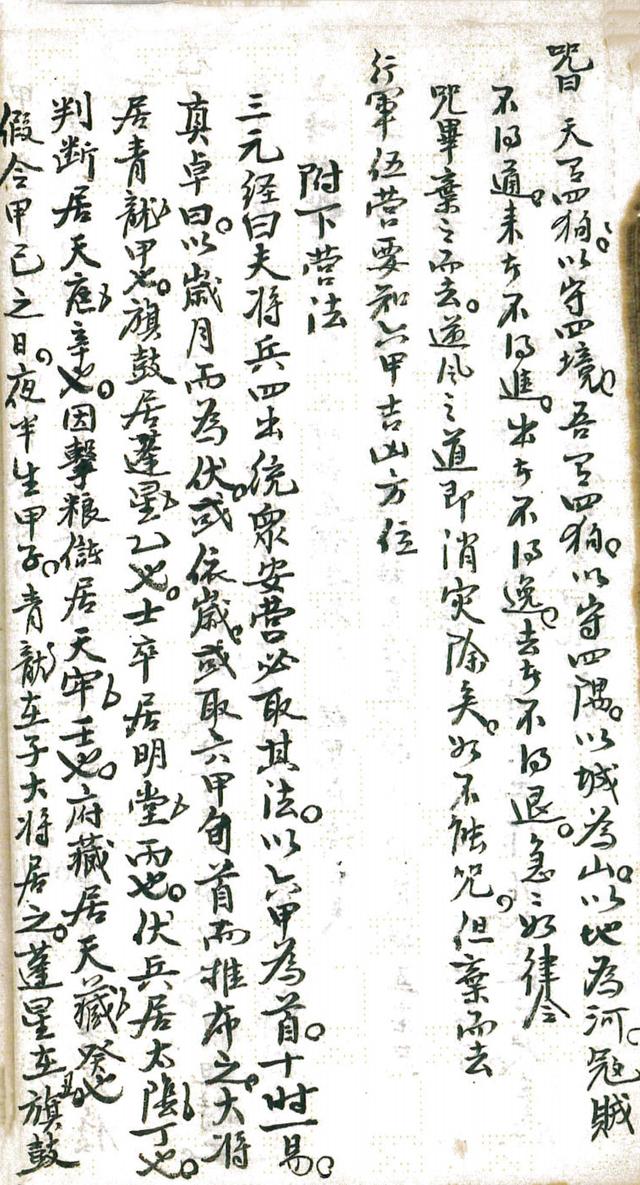 咒曰天有四狗。以守四境。吾有四狗。以守四隅。以城為山。以地為河。寇賊
不得通。来者不得進。出者不得逸。去者不得退。急〻如律令
咒畢棄之而去。逆風之道即消灾除矣。如不能咒。但棄而去
行軍伍營要知六甲吉凶方位
附下营法
三元经曰夫将兵四出统众安营必取其法。以六甲為首。十时一易。
真卓曰。以歲月而為伏。或依歲。或取六甲旬首而推布之。大将
居青龍甲也。旗鼓居蓬星乙也。士卒居明堂丙也。伏兵居太隂丁也。
判断居天庭辛也。因擊粮儲居天牢壬也。府藏居天藏癸也
假令甲己之日。夜半生甲子。青龍在子大将居之。蓬星在丑旗鼓